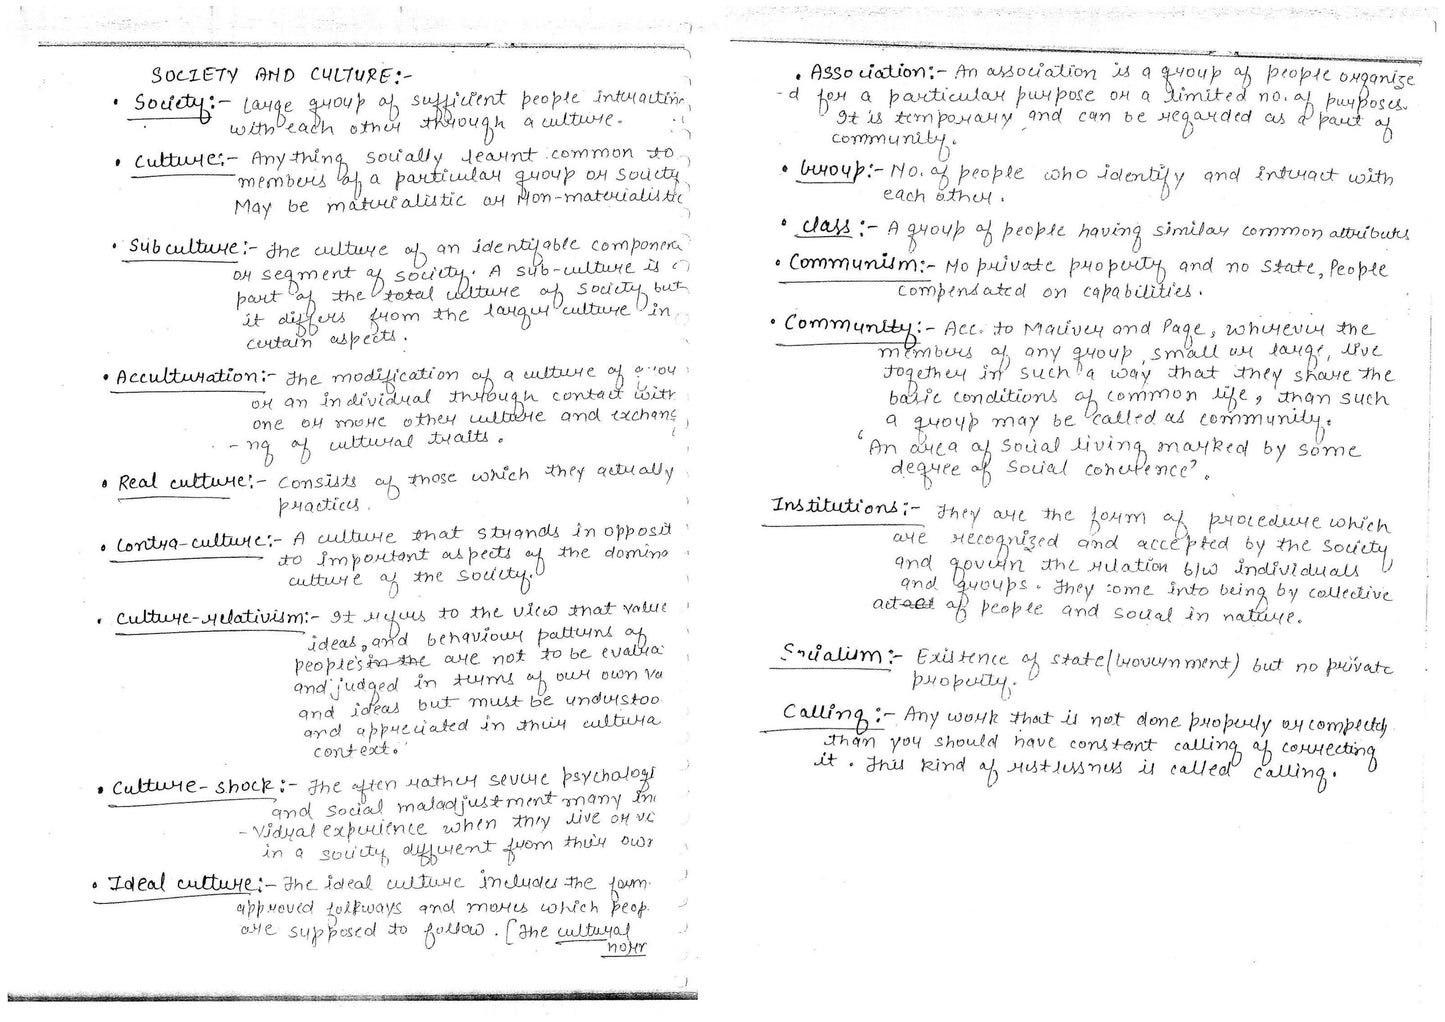 SOCIETY AND CULTURE:-
• Society:- Large group of sufficient people interactin
with each other through a culture.
• Culture:- Anything socially learnt common to
members of a particular group or society
May be materialistic or Non-materialistic
• Subculture:- The culture of an identifable compone
or segment of society. A sub-culture is
part of the total culture of society but
it differs from the larger culture in
certain aspects.
• Acculturation:- The modification of a culture of a
or an individual through contact with
one or more other culture and exchang
-ng of cultural traits.
• Real culture:- Consists of those which they actually
practices.
• Contra-culture:- A culture that strands in opposit
to important aspects of the domina
culture of the society.
• Culture-relativism:- It refers to the view that value
ideas, and behaviour patterns of
people's in the are not to be evalua
and judged in terms of our own va
and ideas but must be understoo
and appreciated in their cultura
context.
• Culture-shock:- The often rather severe psychologi
and social maladjustment many in
-vidual experience when they live or
in a society different from their own
• Ideal culture:- The ideal culture includes the form
approved folkways and mores which peop
are supposed to follow. [The cultural
norr
• Association:- An association is a group of people organize
-d for a particular purpose or a limited no. of purposes.
It is temporary and can be regarded as a part of
community.
• Group:- No. of people who identify and intract with
each other.
• Class:- A group of people having similar common attributs
• Communism:- No private property and no state, People
compensated on capabilities.
• Community:- Acc. to Maciver and Page, wherever the
members of any group, small or large, live
together in such a way that they share the
basic conditions of common life, than such
a group may be called as community.
'An area of social living marked by some
degree of social coherence'.
Institutions:- They are the form of procedure which
are recognized and accepted by the society
and govern the relation b/w individuals
and groups. They come into being by collective
act act of people and social in nature.
Socialism:- Existence of state (Government) but no private
property.
Calling:- Any work that is not done properly or completely
than you should have constant calling of correcting
it. This kind of restlessness is called calling.